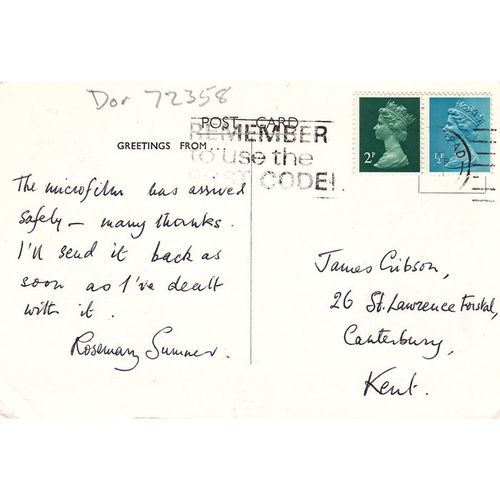 Dor 72358
POST CARD
REMEMBER
to use the
POST CODE!
GREETINGS FROM...
2P
½P
The microfilm has arrived
safely – many thanks.
I'll send it back as
soon as I've dealt
with it.
Rosemary Sumner.
James Gibson,
26 St. Lawrence Forstal,
Canterbury,
Kent.